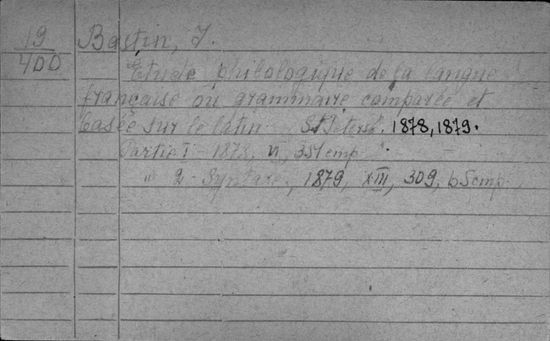 19
400
Bastin, J.
Etude philologique de la langue
française ou grammaire comparée et
basée sur le latin S. Petersb. 1878, 1879.
Partie I 1878, VI, 351 стр.
" 2 - Syntaxe, 1879, XIII, 309, стр.